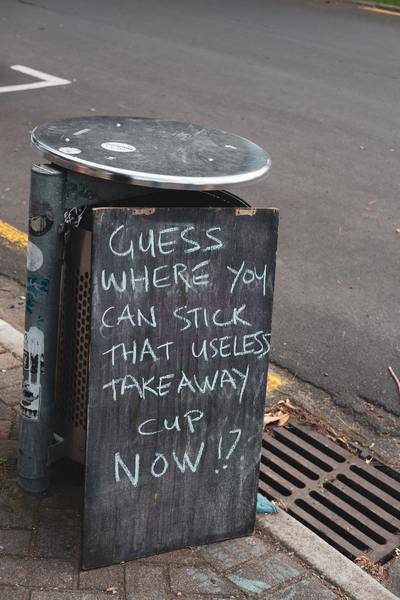 GUESS
WHERE YOU
CAN STICK
THAT USELESS
TAKEAWAY
CUP
NOW!?